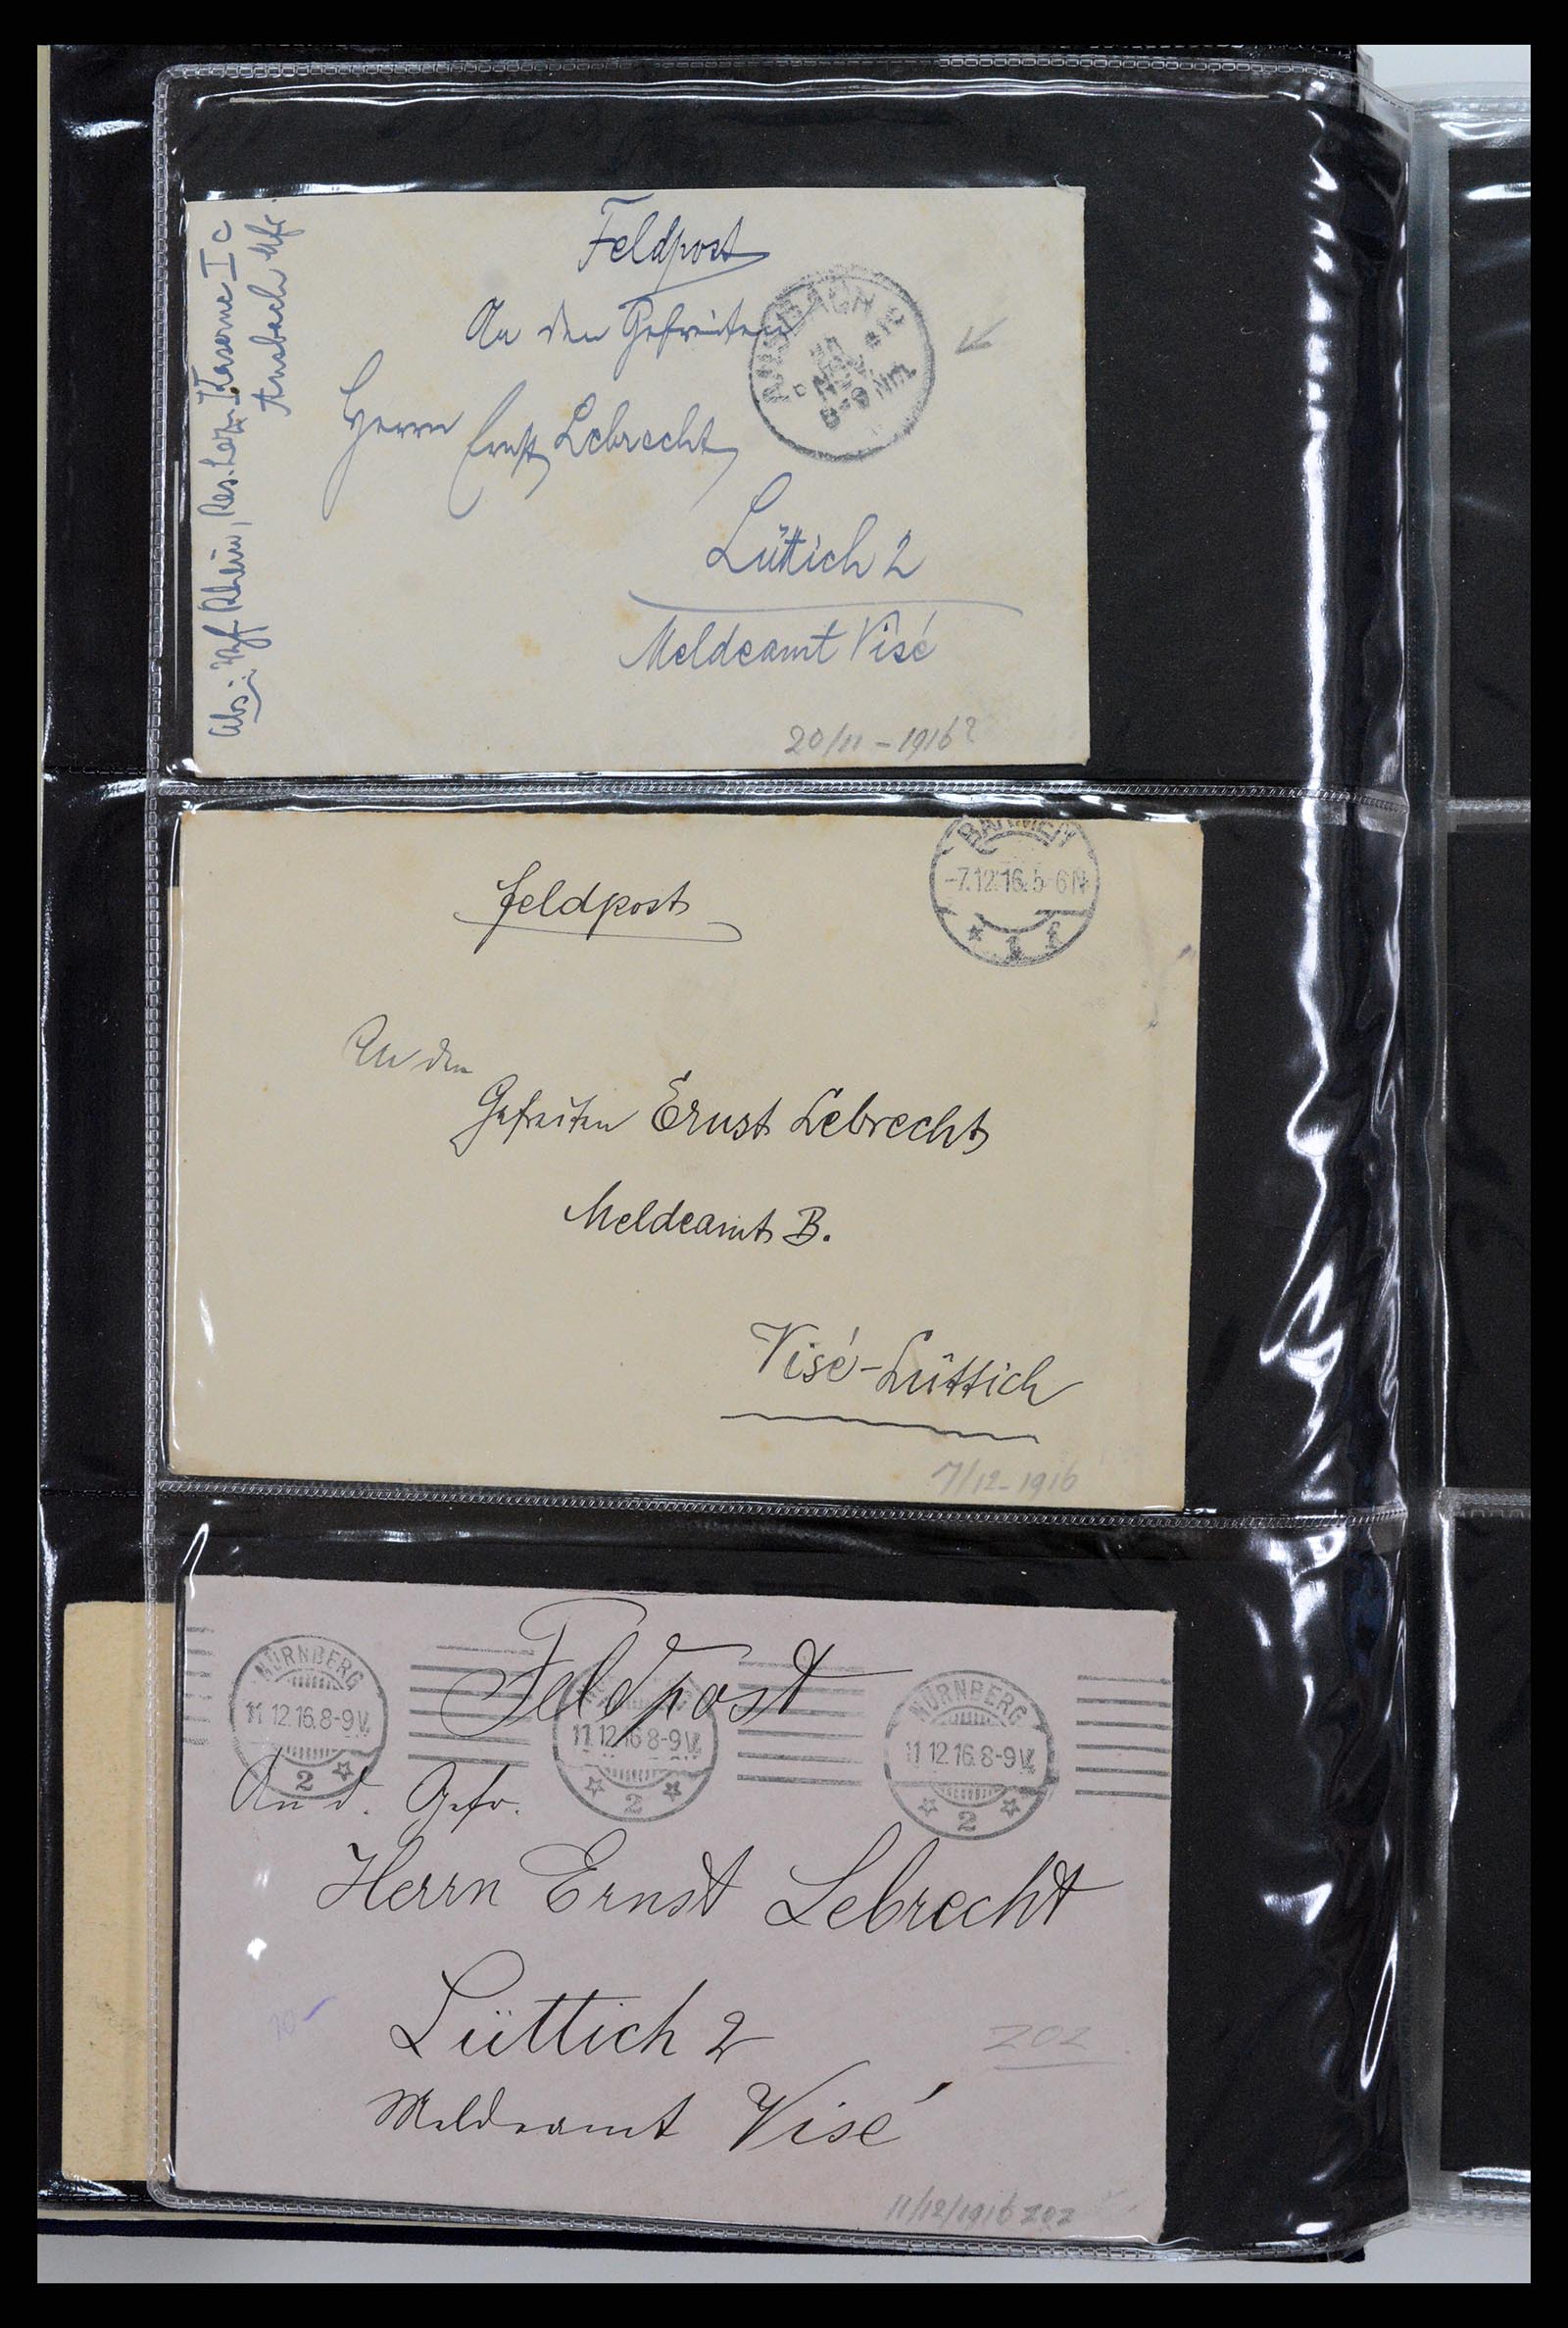 Feldpost
An den Gefreiten
Herrn Ernst Lebrecht
Lüttich 2
Meldeamt Visé
Abs.: Rhein, Res. Laz. Kaserne I c
Ansbach Mfr.
ANSBACH 2
NOV.
8-9 NM.
20/11 - 1916?
feldpost
BARMEN
-7.12.16.5-6N
1 f
An den
Gefreiten Ernst Lebrecht
Meldeamt B.
Visé-Lüttich
7/12-1916
NÜRNBERG
11.12.16.8-9V.
2
11.12.16 8-9V.
2
NÜRNBERG
11.12.16.8-9V.
2
Feldpost
An d. Gefr.
Herrn Ernst Lebrecht
Lüttich 2
Meldeamt Visé
20-
202
11/12/1916 202